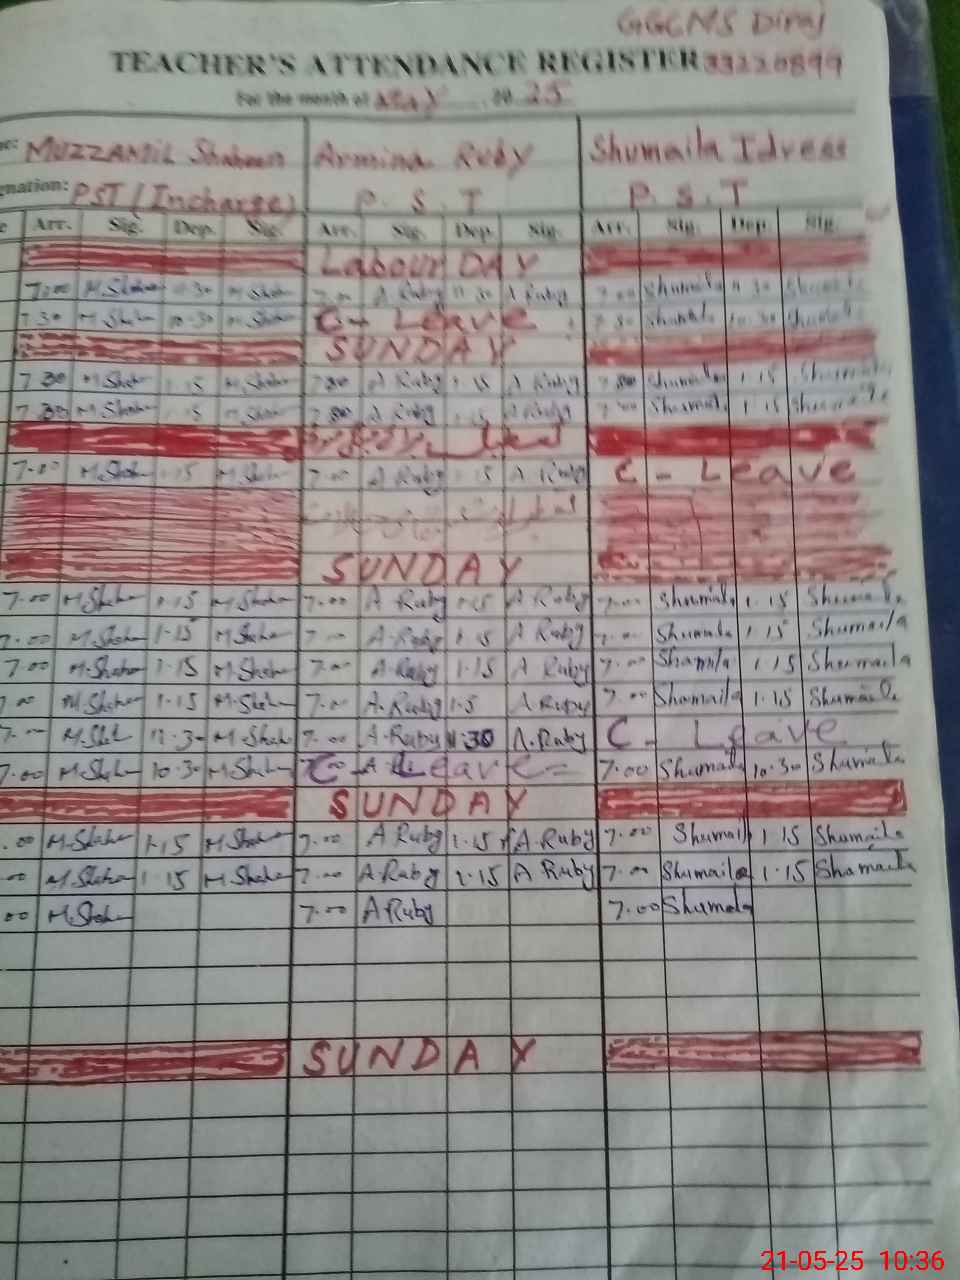 GGCMS Diraj
TEACHER'S ATTENDANCE REGISTER 33220899
For the month of May 20 25
MUZZAMIL Shaheen Armina Ruby Shumaila Idrees
gnation: PST (Incharge) P. S. T P. S. T
Arr. Sig. Dep. Sig. Arr. Sig. Dep. Sig. Arr. Sig. Dep. Sig.
Labour DAY
7.00 M.Shahen 11.30 M.Shahen 7.00 A Ruby 11.30 A Ruby 7.00 Shumaila 11.30 Shumaila
7.30 M.Shahen 10.30 M.Shahen C- Leave 7.30 Shumaila 10.30 Shumaila
SUNDAY
7.30 M.Shahen 1.15 M.Shahen 7.30 A Ruby 1.15 A Ruby Shumaila 1.15 Shumaila
7.30 M.Shahen 1.15 M.Shahen 7.30 A Ruby 1.15 A Ruby Shumaila 1.15 Shumaila
7.00 M.Shahen 1.15 M.Shahen 7.00 A Ruby 1.15 A Ruby C - Leave
SUNDAY
7.00 M.Shahen 1.15 M.Shahen 7.00 A Ruby 1.15 A Ruby 7.00 Shumaila 1.15 Shumaila
7.00 M.Shahen 1.15 M.Shahen 7.00 A.Ruby 1.15 A Ruby 7.00 Shumaila 1.15 Shumaila
7.00 M.Shahen 1.15 M.Shahen 7.00 A.Ruby 1.15 A Ruby 7.00 Shumaila 1.15 Shumaila
7.00 M.Shahen 1.15 M.Shahen 7.00 A.Ruby 1.5 A Ruby 7.00 Shumaila 1.15 Shumaila
7.00 M.Shah 11.30 M.Shah 7.00 A.Ruby 11.30 A.Ruby C - Leave
7.00 M.Shahen 10.30 M.Shahen C - Leave - 7.00 Shumaila 10.30 Shumaila
SUNDAY
.00 M.Shahen 1.15 M.Shahen 7.00 A Ruby 1.15 A.Ruby 7.00 Shumaila 1.15 Shumaila
00 M.Shahen 1.15 M.Shahen 7.00 A.Ruby 1.15 A Ruby 7.00 Shumaila 1.15 Shumaila
00 M.Shahen 7.00 A Ruby 7.00 Shumaila
SUNDAY
21-05-25 10:36